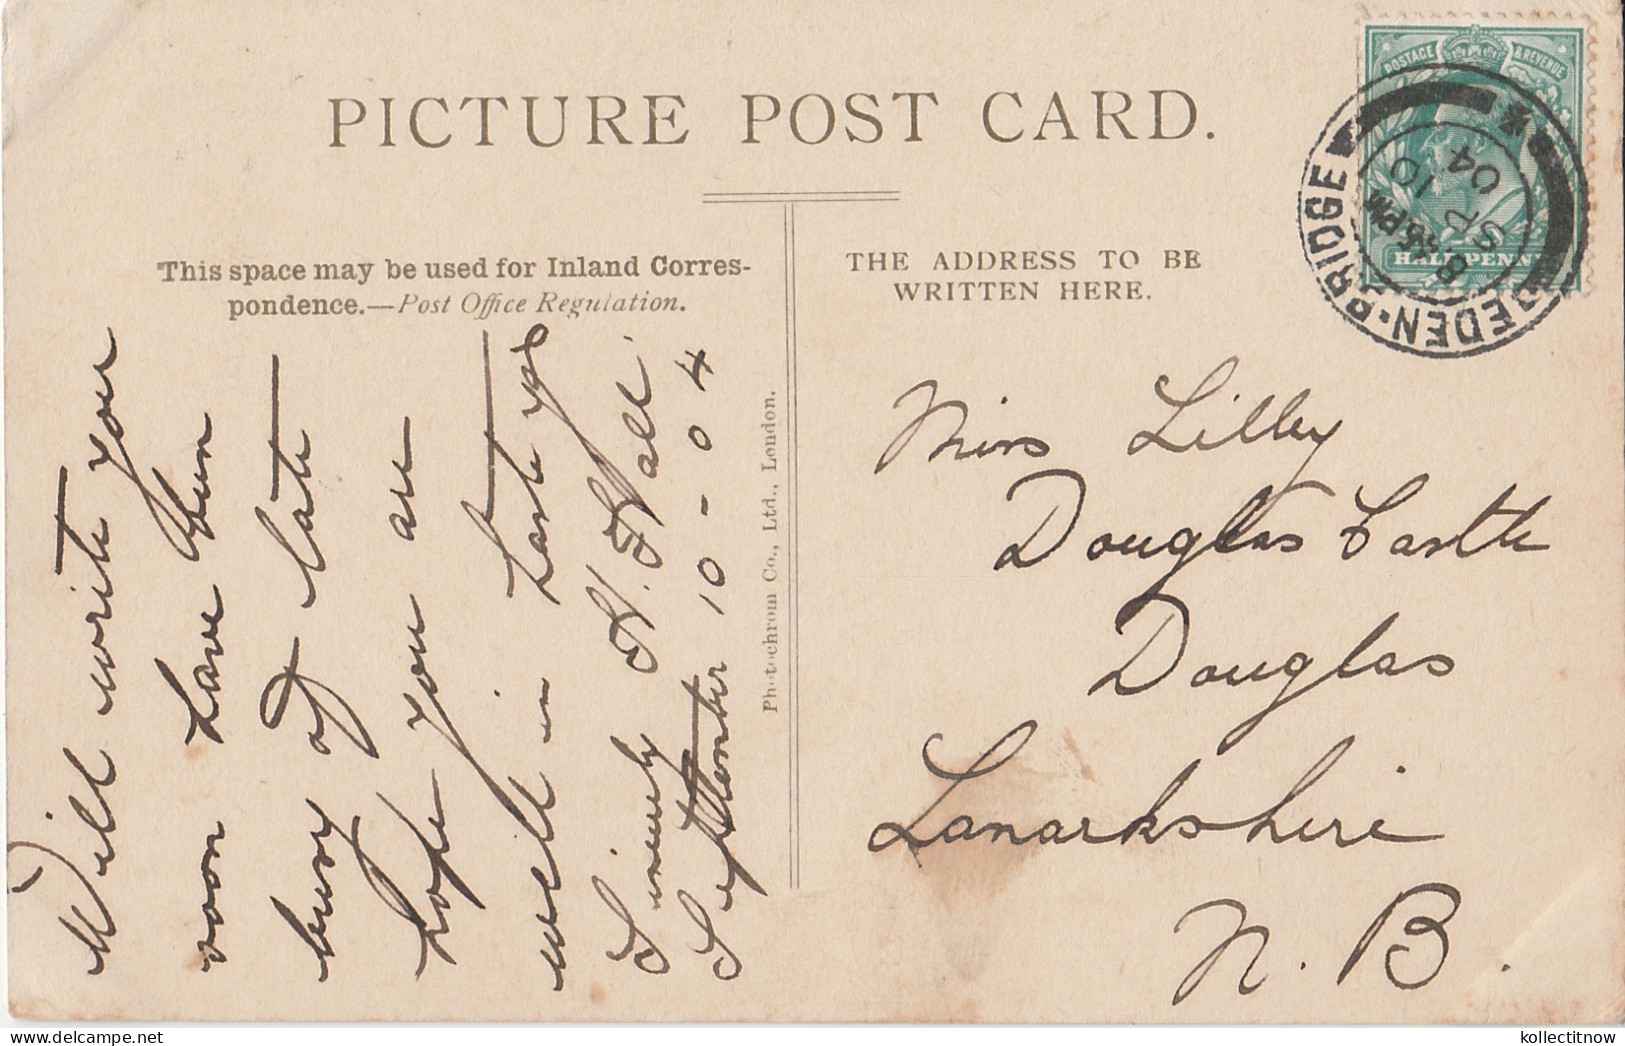 PICTURE POST CARD.
This space may be used for Inland Corres-
pondence.—Post Office Regulation.
THE ADDRESS TO BE
WRITTEN HERE.
POSTAGE & REVENUE
HALFPENNY
EDEN·BRIDGE
8 45 PM
SP 10
04
Will write you
soon have been
busy of late
hope you are
well in haste yrs
Sincerely H. Hall
September 10 - 04
Photochrom Co., Ltd., London.
Miss Lilley
Douglas Castle
Douglas
Lanarkshire
N. B.
kollectitnow